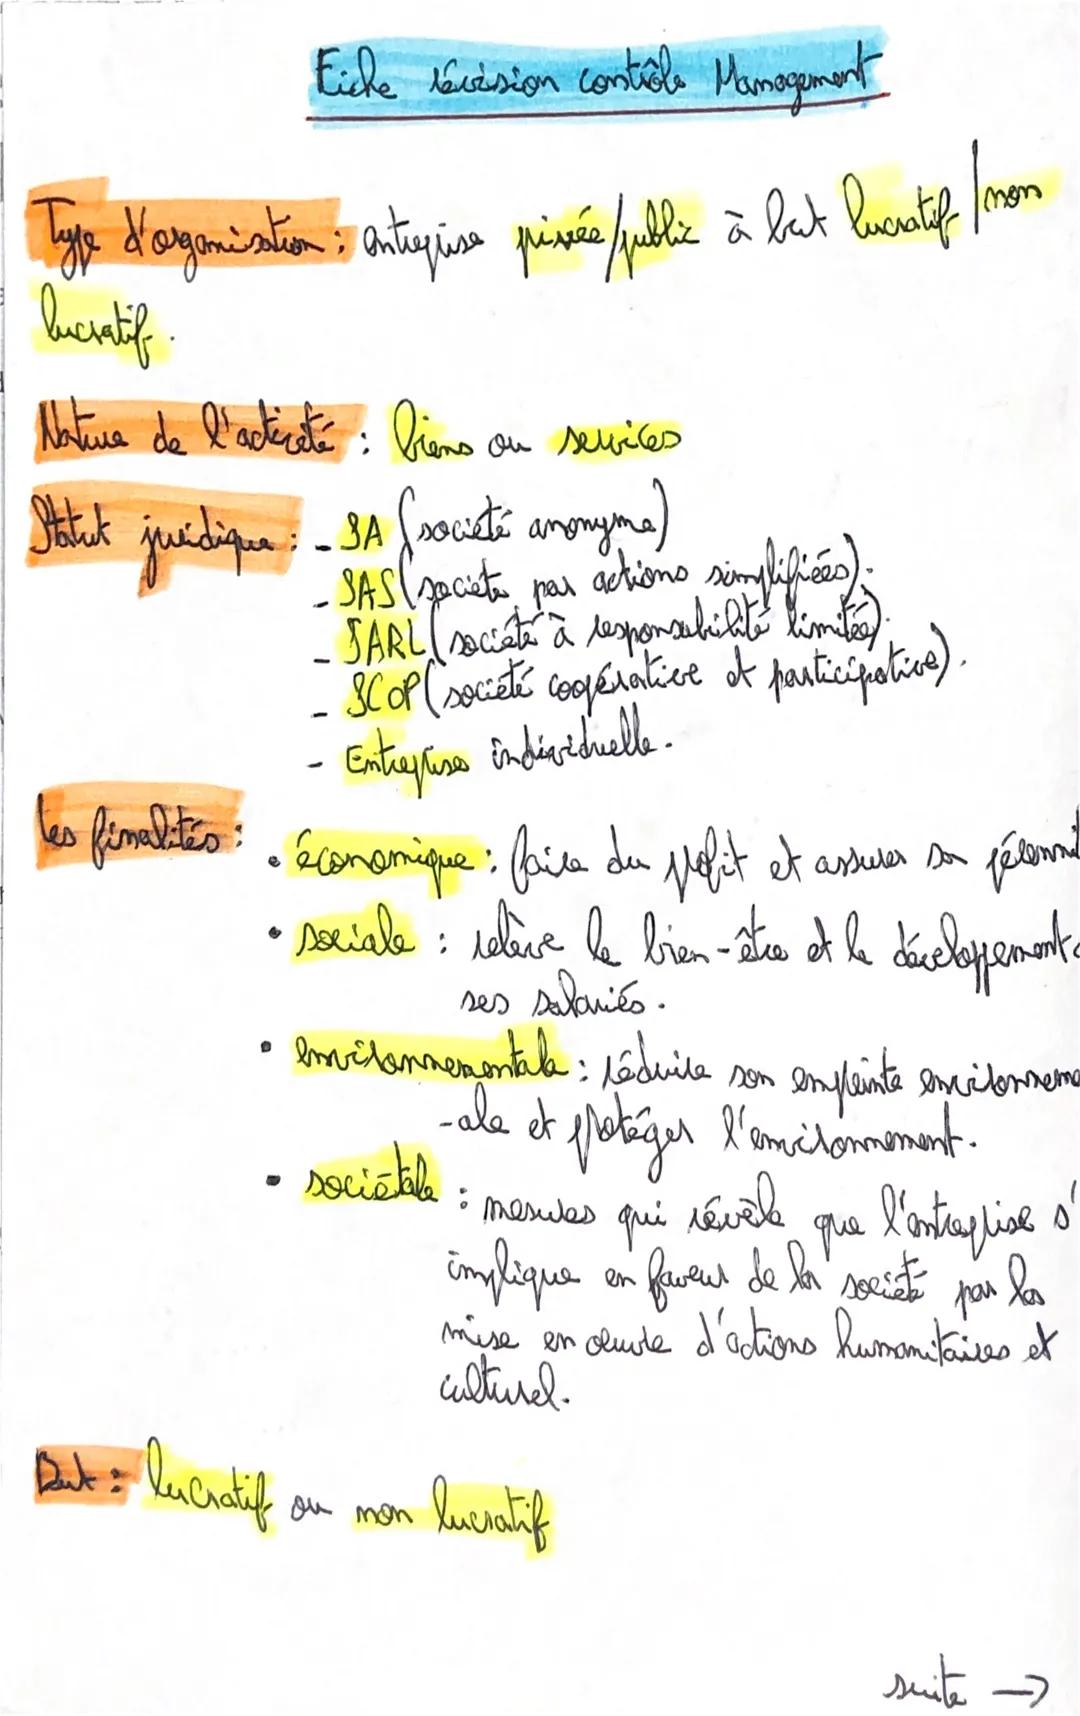 Fiche révision contrôle Management
Type d'organisation : entreprise privée/public à but lucratif/non
lucratif.
Nature de l'activité : biens ou services
Statut juridique : - SA (société anonyme)
- SAS (société par actions simplifiées).
- SARL (société à responsabilité limitée).
- SCOP (société coopérative et participative).
- Entreprise individuelle.
Les finalités :
• économique : faire du profit et assurer sa pérennit
• sociale : relève le bien-être et le développement
ses salariés.
• environnementale : réduire son empreinte environneme
-ale et protéger l'environnement.
• sociétale : mesures qui révèle que l'entreprise s'
implique en faveur de la société par la
mise en œuvre d'actions humanitaires et
culturel.
But : lucratif ou non lucratif
suite →